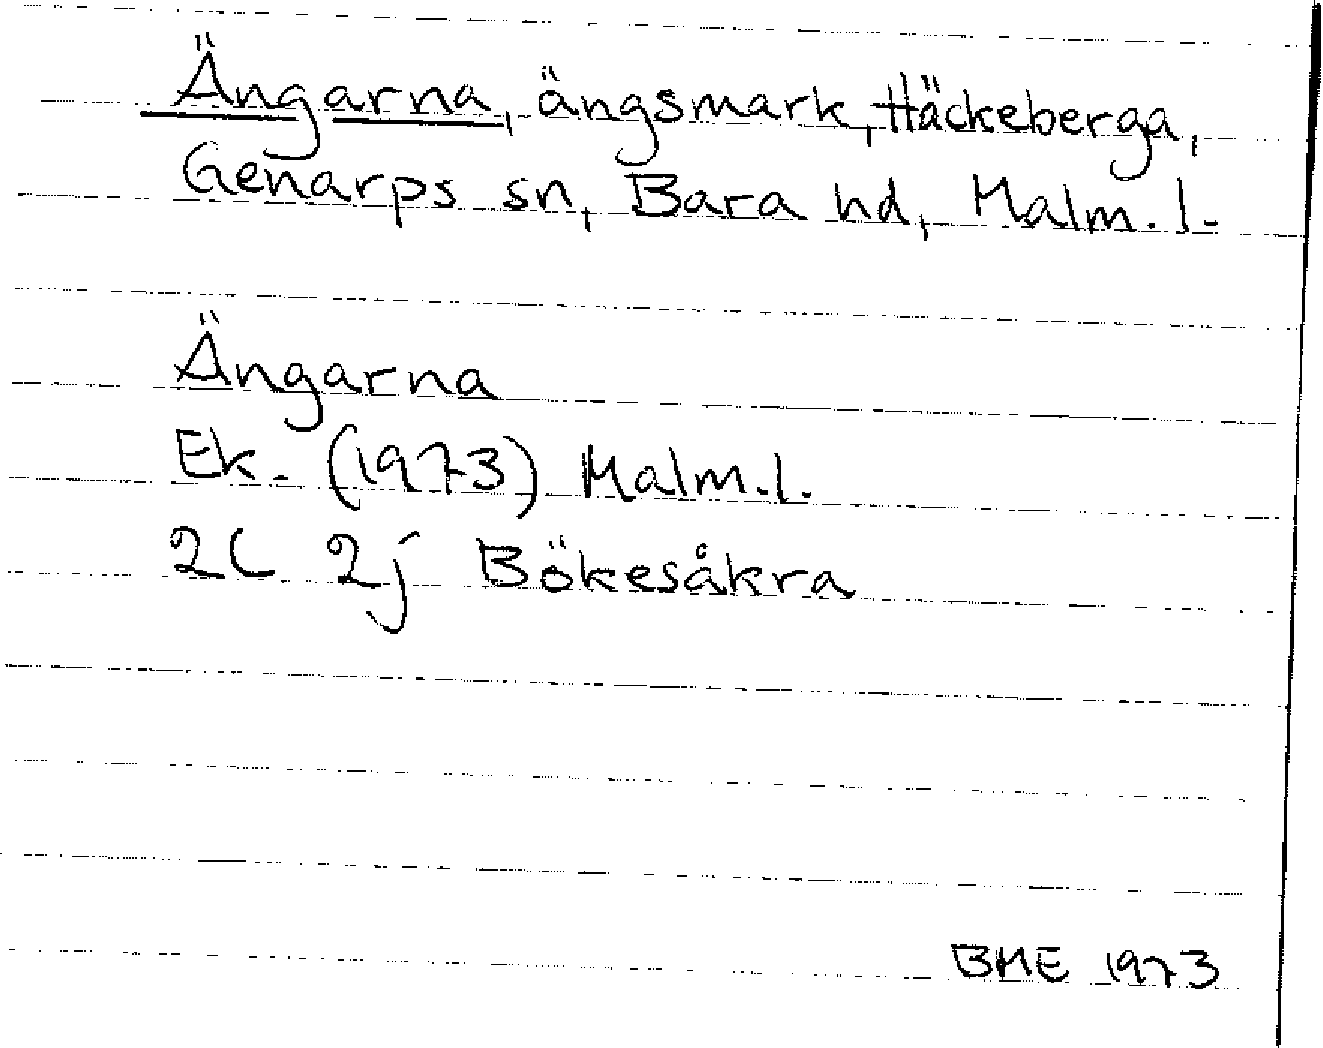 Ängarna, ängsmark, Häckeberga,
Genarps sn, Bara hd, Malm. l.
Ängarna
Ek. (1973) Malm.l.
2C 2j Bökesåkra
BME 1973